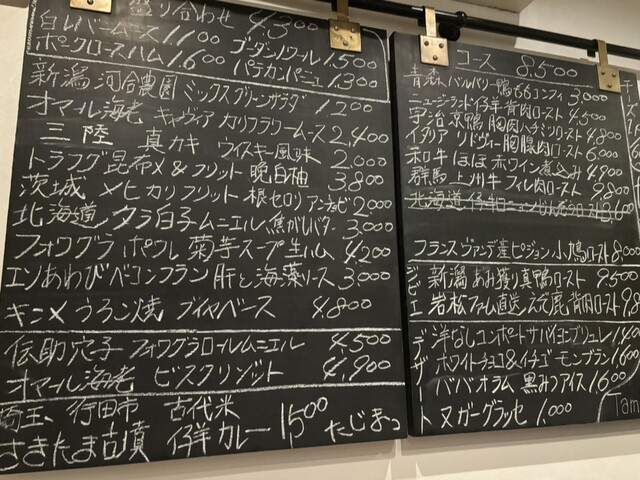 盛り合わせ 4,300
白レバームース 1,100 ゴーダンノワール 1,500
ポークロースハム 1,600 パテカンパーニュ 1,300
新潟 河合農園 ミックスグリーンサラダ 1,200
オマール海老 キャヴィア カリフラワームース 2,400
三陸 真カキ ウイスキー風味 2,000
トラフグ昆布〆&フリット 晩白柚 3,800
茨城 メヒカリフリット 根セロリ アンチョビ 2,000
北海道 タラ白子ムニエル 焦がしバター 3,000
フォワグラ ポワレ 菊芋スープ 生ハム 4,200
エゾあわび ベニコンフラン 肝と海藻ソース 3,000
キンメ うろこ焼 ブイヤベース 4,800
伝助穴子 フォワグラロールムニエル 4,500
オマール海老 ビスクリゾット 4,900
埼玉、行田市 古代米
さきたま古墳 仔羊カレー 1,500 たじまっ
コース 8,500
青森 バルバリー鴨ももコンフィ 3,000
ニュージーランド仔羊背肉ロースト 4,500
宇治 京鴨 胸肉ハチミツロースト 4,800
イタリア リドヴォー胸腺肉ロースト 6,000
和牛 ほほ赤ワイン煮込み 4,900
群馬 上州牛 フィレ肉ロースト 9,800
フランス ヴァンデ産ピジョン 小鳩ロースト 8,000
ジビエ 新潟 あみ獲り真鴨ロースト 9,500
岩松ファーム直送 えぞ鹿 背肉ロースト
デザート 洋なしコンポート ナパイヨンブリュレ
ホワイトチョコ&イチゴ モンブラン 1,600
ババオラム 黒みつアイス 1,600
ヌガーグラッセ 1,000
Tam